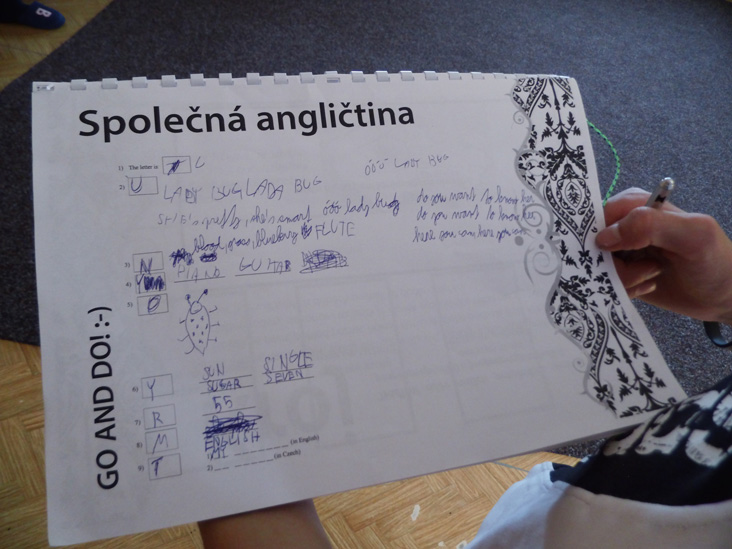 Společná angličtina
GO AND DO! :-)
1) The letter is
2) U
LADY BUG LADA BUG
óóó LADY BUG
she's pretty, she's smart óóó lady budy
do you want to know her
do you want to know her
here you can here you can
FLUTE
3) N
4) Y
5) O
SUN SINGLE
6) Y SUGAR SEVEN
55
7) R
8) M ENGLISH
9) T 1) (in English)
2) (in Czech)